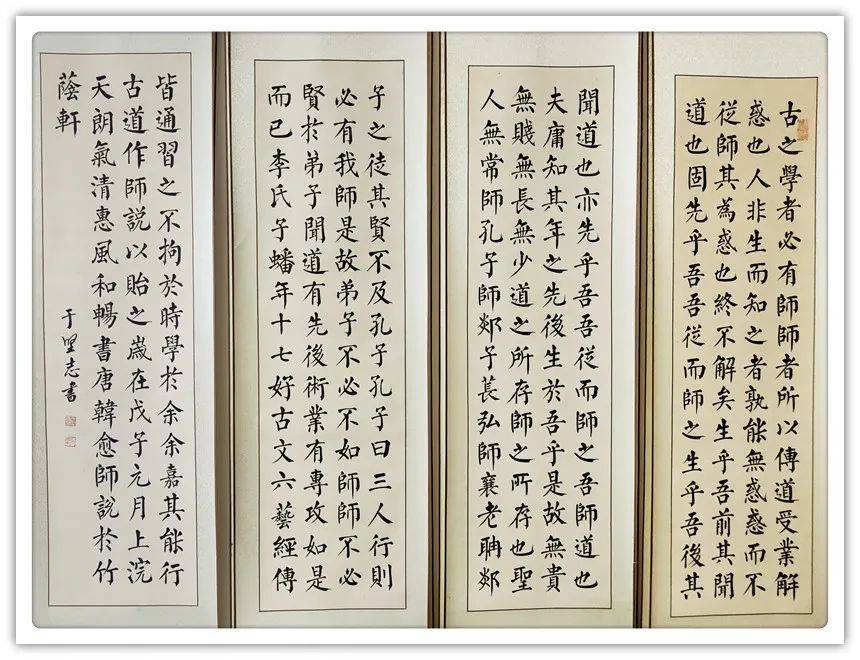 古之學者必有師師者所以傳道受業解
惑也人非生而知之者孰能無惑惑而不
從師其為惑也終不解矣生乎吾前其聞
道也固先乎吾吾從而師之生乎吾後其
聞道也亦先乎吾吾從而師之吾師道也
夫庸知其年之先後生於吾乎是故無貴
無賤無長無少道之所存師之所存也聖
人無常師孔子師郯子萇弘師襄老聃郯
子之徒其賢不及孔子孔子曰三人行則
必有我師是故弟子不必不如師師不必
賢於弟子聞道有先後術業有專攻如是
而已李氏子蟠年十七好古文六藝經傳
皆通習之不拘於時學於余余嘉其能行
古道作師說以貽之歲在戊子元月上浣
天朗氣清惠風和暢書唐韓愈師說於竹
蔭軒
于志書